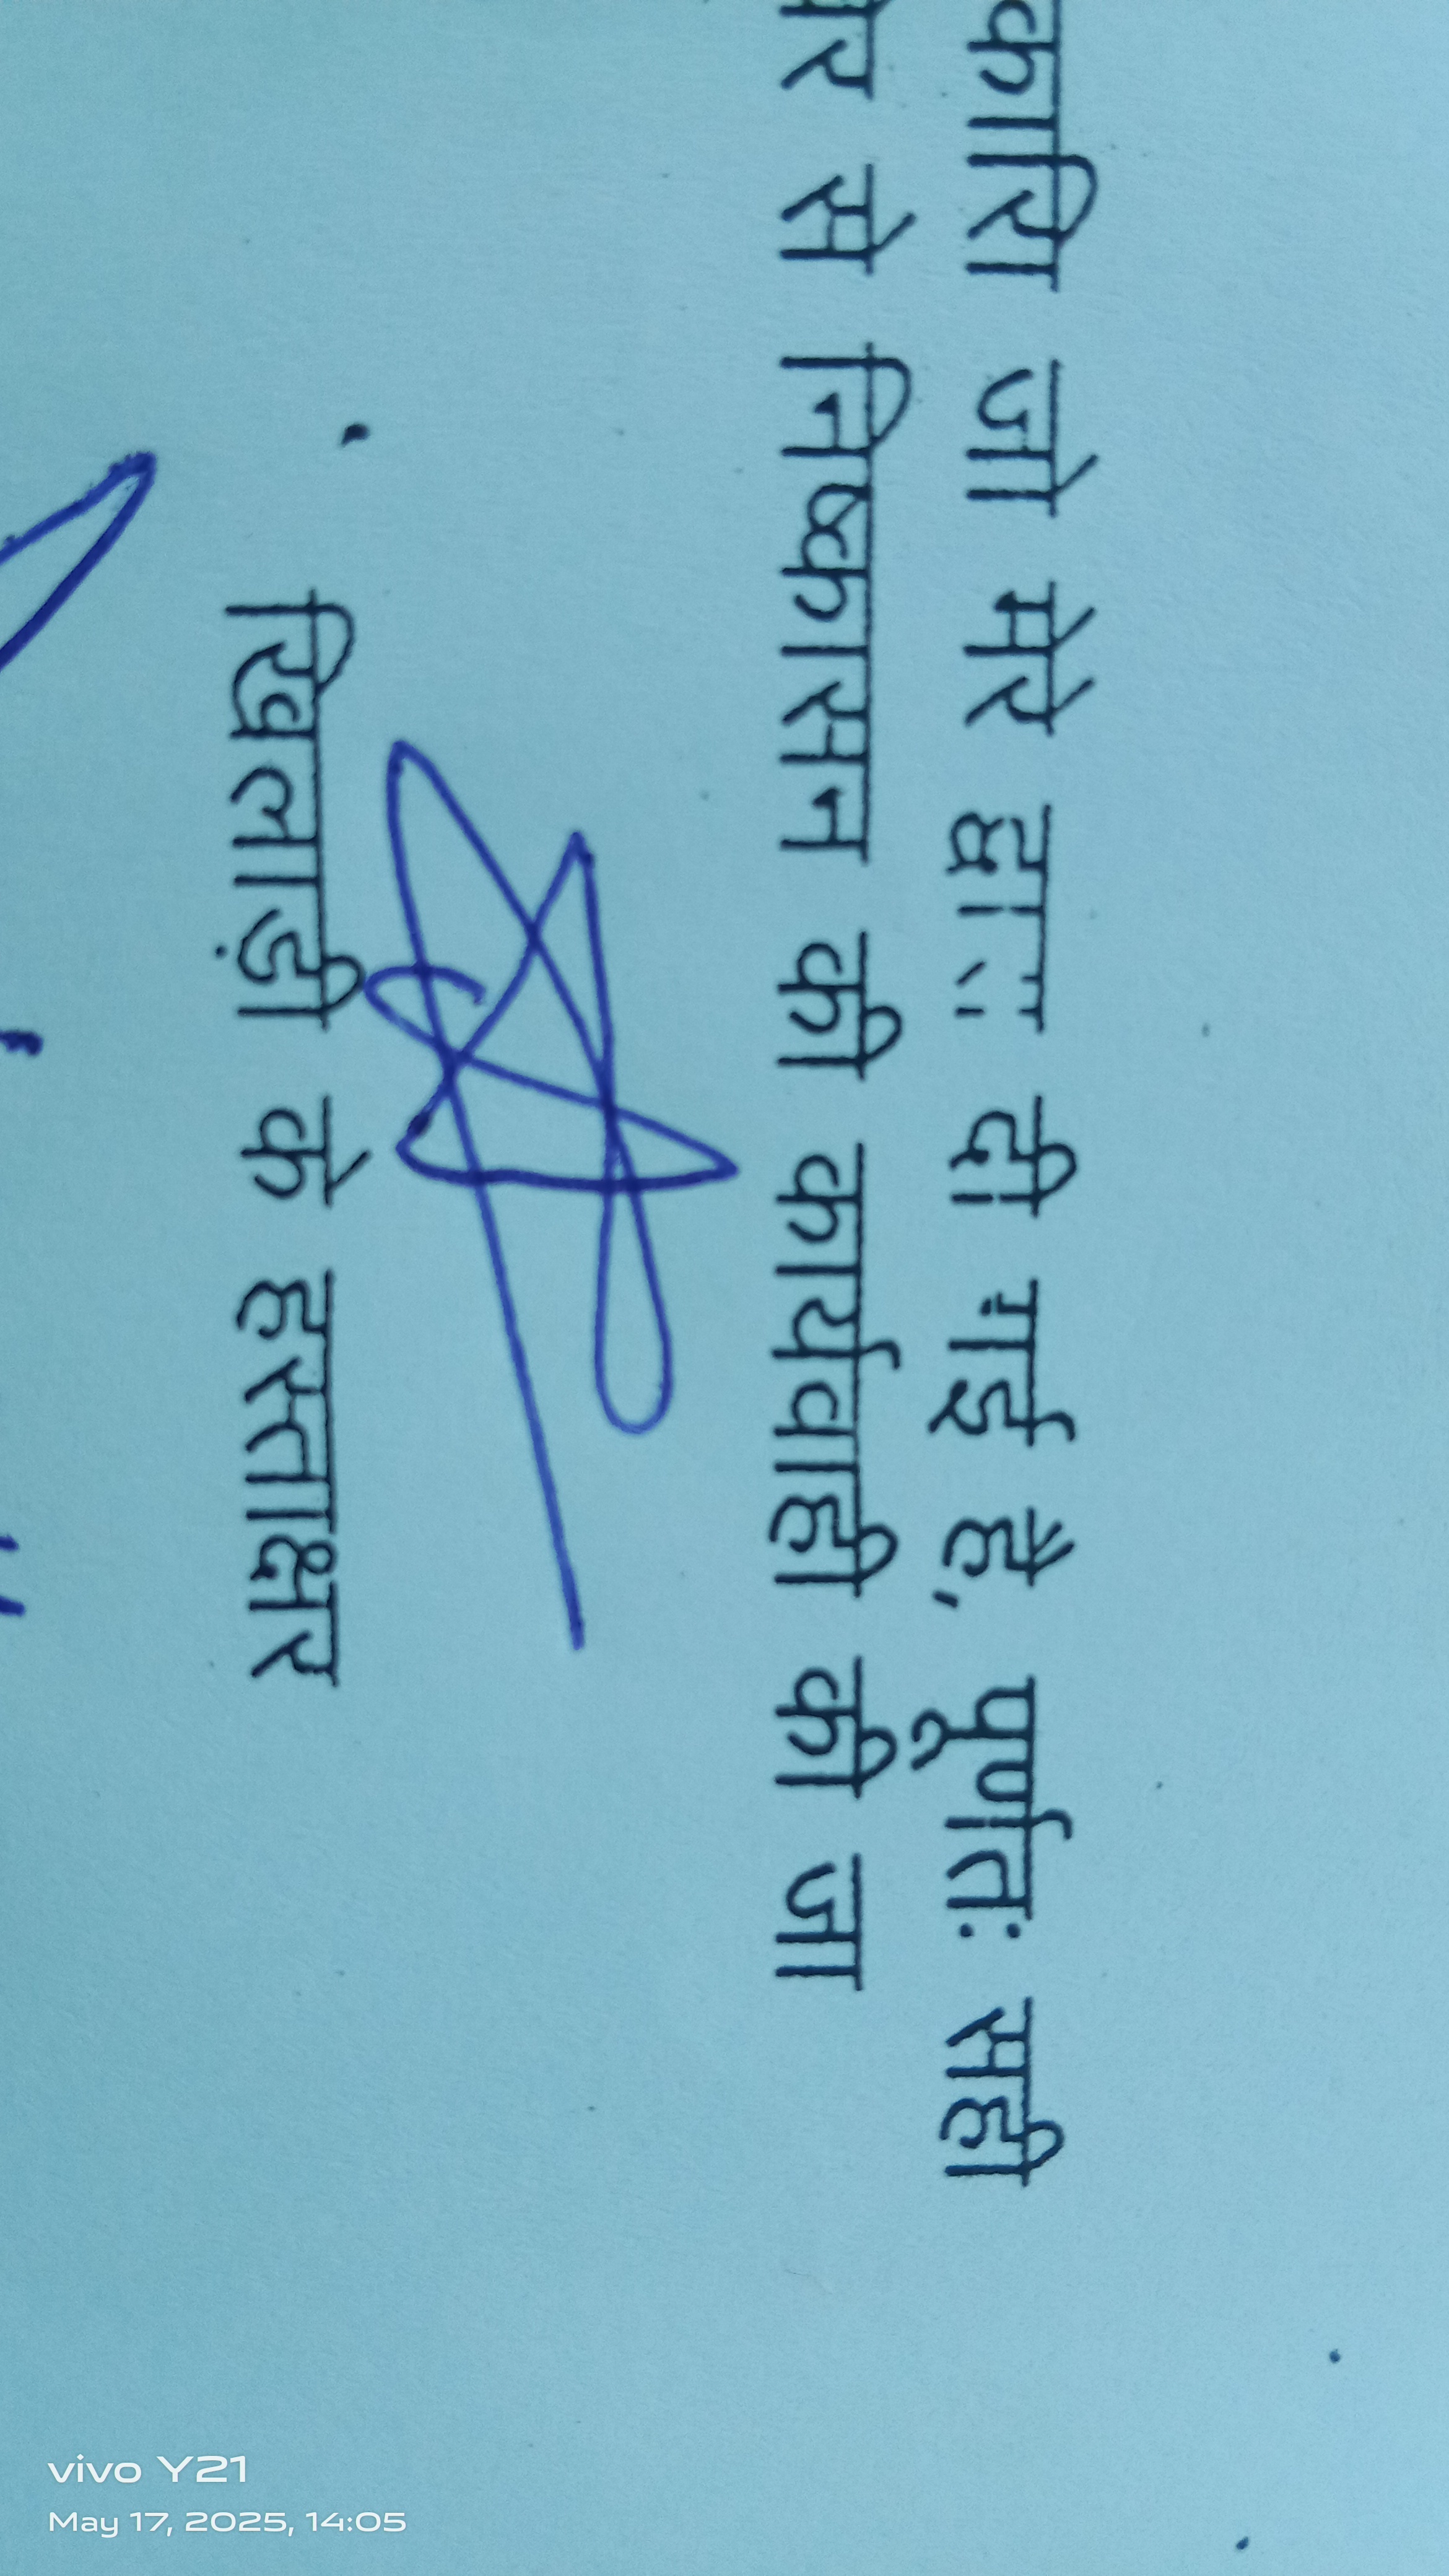 कारी जो मेरे द्वारा दी गई है, पूर्णतः सही
से निष्कासन की कार्यवाही की जा
खिलाड़ी के हस्ताक्षर
vivo Y21
May 17, 2025, 14:05